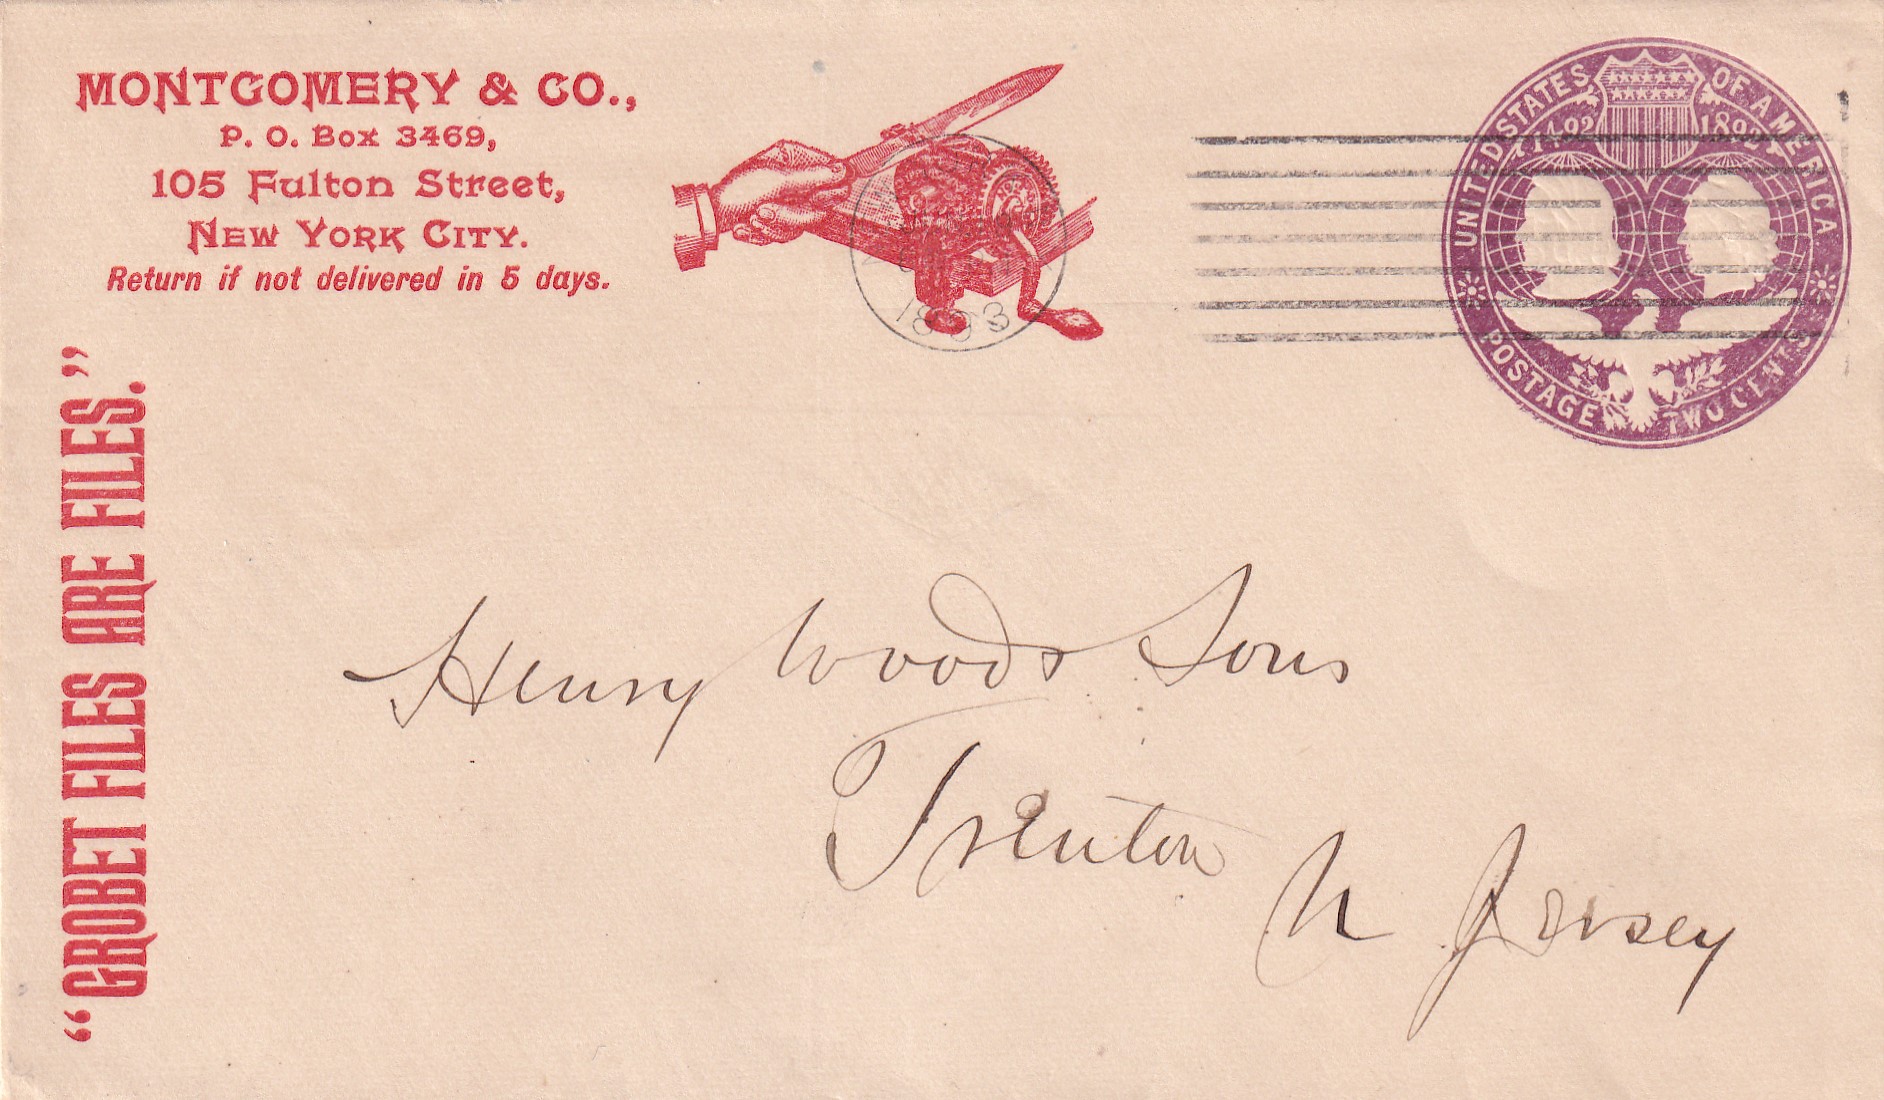 MONTGOMERY & CO.,
P. O. Box 3469,
105 Fulton Street,
NEW YORK CITY.
Return if not delivered in 5 days.
"GROBET FILES ARE FILES."
1893
UNITED STATES OF AMERICA
1492 1892
POSTAGE TWO CENTS
Henry Woods Sons
Trenton
N Jersey